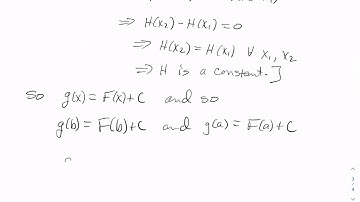 ⇒ H(x₂) - H(x₁) = 0
⇒ H(x₂) = H(x₁) ∀ x₁, x₂
⇒ H is a constant.]
So g(x) = F(x) + C and so
g(b) = F(b) + C and g(a) = F(a) + C